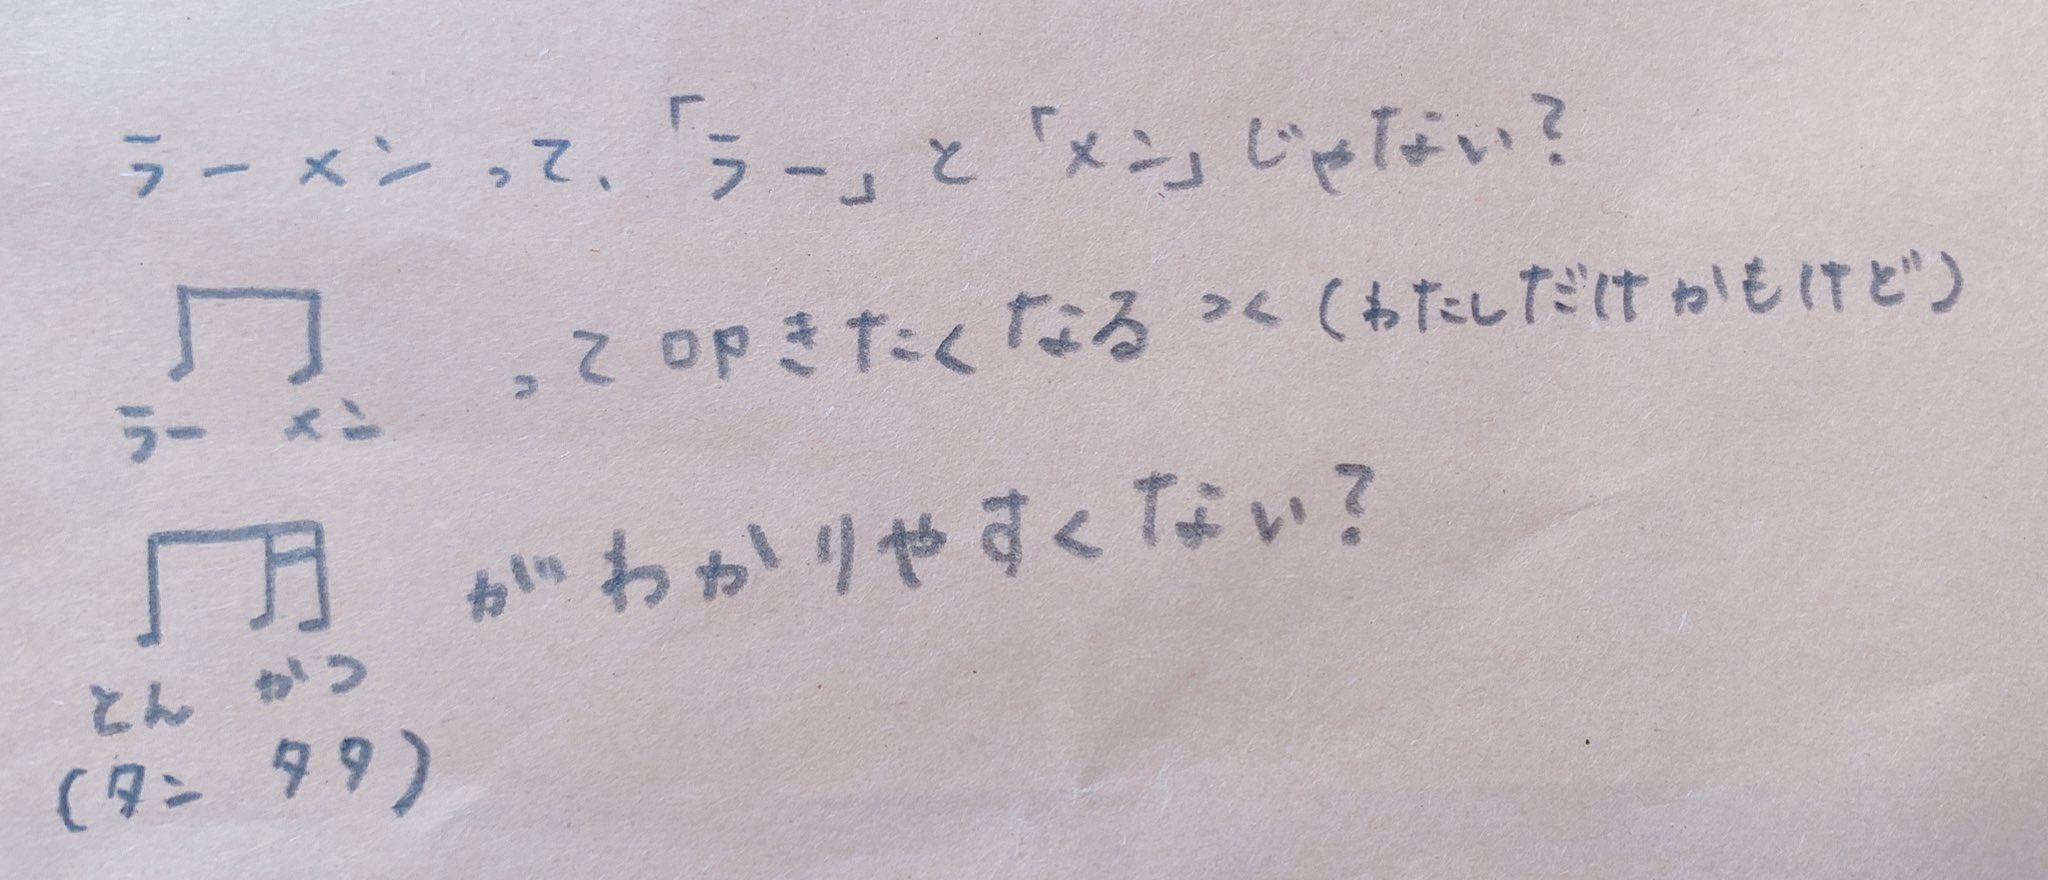 ラーメンって、「ラー」と「メン」じゃない?
って叩きたくなる><(わたしだけかもけど)
ラー メン
がわかりやすくない?
とん かつ
(タン タタ)